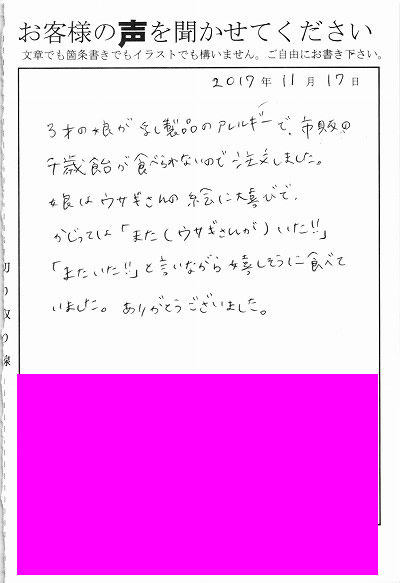 お客様の声を聞かせてください
文章でも箇条書きでもイラストでも構いません。ご自由にお書き下さい。
2017年11月17日
3才の娘が乳製品のアレルギーで、市販の
千歳飴が食べられないので注文しました。
娘はウサギさんの絵に大喜びで、
かじっては「また(ウサギさんが)いた!!」
「またいた!!」と言いながら嬉しそうに食べて
いました。ありがとうございました。
切り取り線